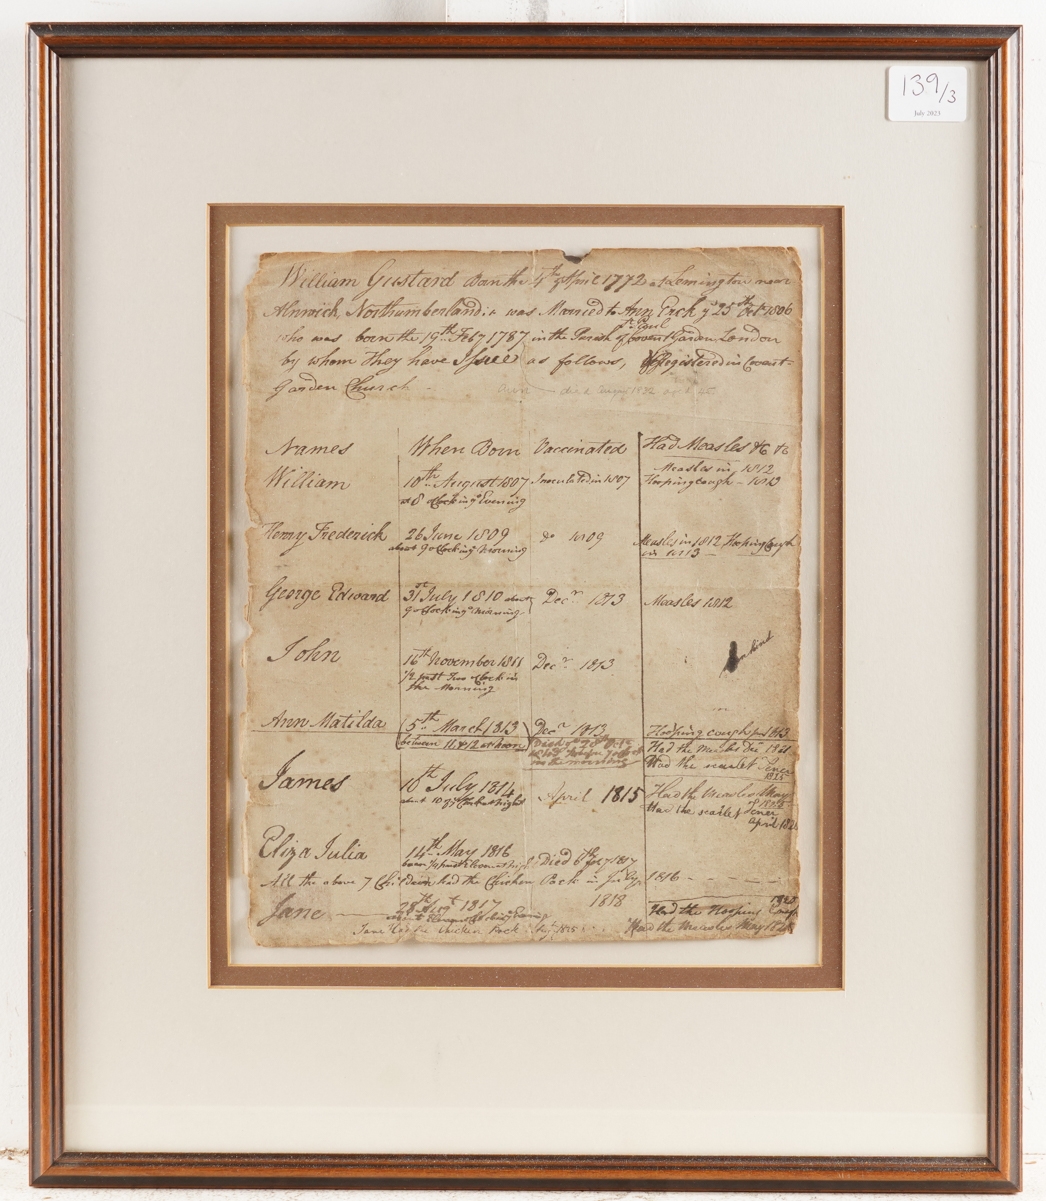 139/3
July 2023
William Gustard Born the 4th April 1772 at Lemington near
Alnwick, Northumberland: & was Married to Ann Peck ye 25th Octr 1806
St Paul
who was born the 19th Feby 1787 in the Parish of Covent Garden London
by whom they have Issue as follows, Registered in Covent-
Garden Church.
Ann died 1832
Names When Born Vaccinated Had Measles &c &c
William 10th August 1807 Inoculated in 1807 Measles in 1812
at 8 oClock in ye Evening Hooping cough - 1813
Henry Frederick 26 June 1809 do 1809 Measles in 1812 Hooping Cough
about 9 oClock in ye Morning in 1813
George Edward 31st July 1810 about Decr 1813 Measles 1812
9 oClock in ye Morning
John 16th November 1811 Decr 1813
1/2 past Two oClock in
the Morning
Ann Matilda 5th March 1813 Decr 1813 Hooping cough 1813
between 11 & 12 at noon Had the Measles
in the morning Had the scarlet Fever
1825
James 10th July 1814 April 1815 Had the Measles May
about 10 at Night 1825
Had the scarlet Fever
April 1825
Eliza Julia 14th May 1816 Died 6th July 1817
All the above 7 Children had the Chicken Pock in July 1816
Jane 28th Augt 1817 1818 Had the Hooping Cough
Evening
Jane had the Chicken Pock 1825 Had the Measles May 1825